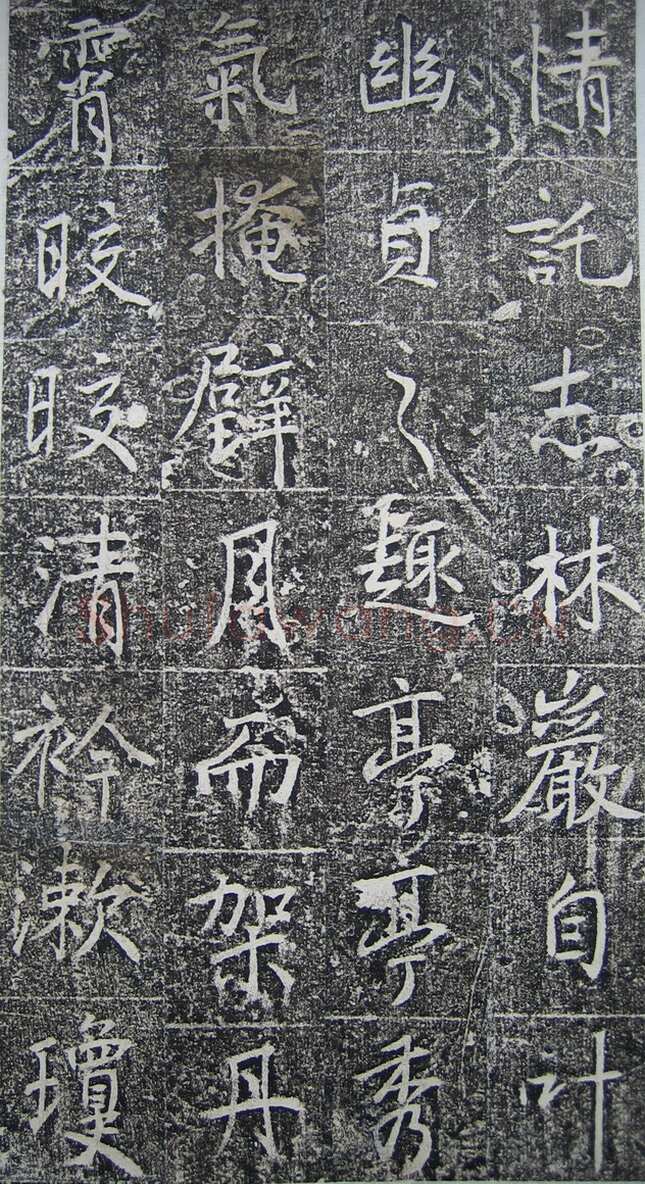 情託志林巖自叶
幽貞之趣亭亭秀
氣掩璧月而架丹
霄晈晈清衿漱瓊
shufawang.cn